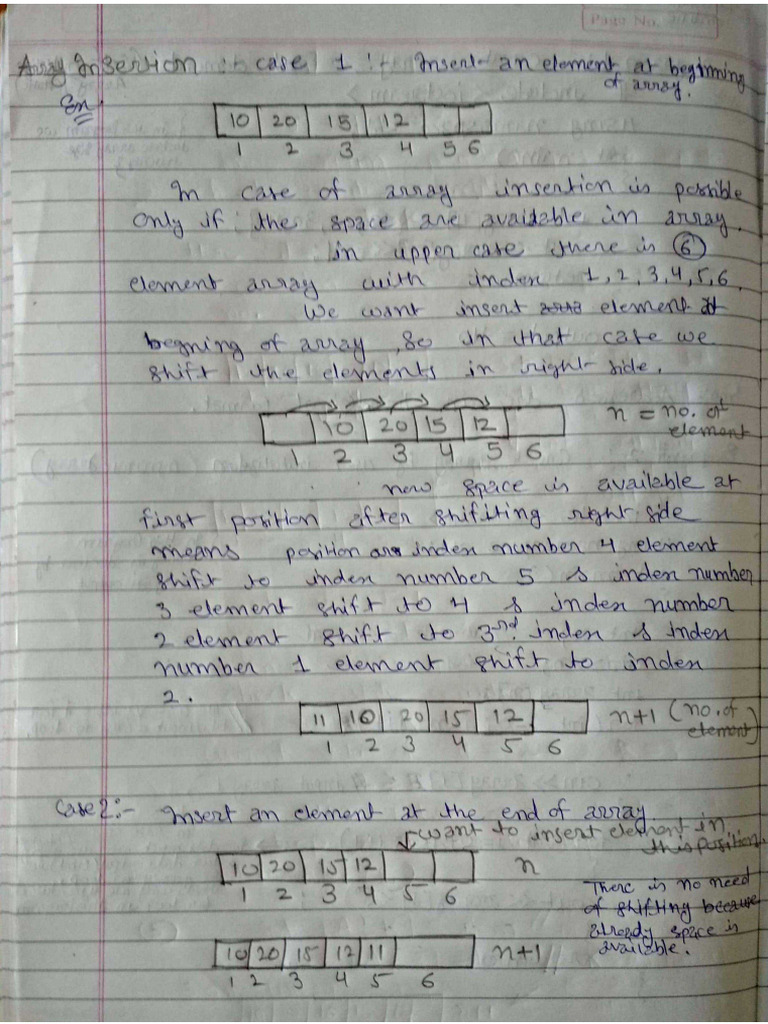 Page No.
Array Insertion : case 1 : Insert an element at beginning
of array.
Ex.
10 20 15 12
1 2 3 4 5 6
In case of array insertion is possible
only if the space are available in array.
in upper case there is 6
element array with index 1, 2, 3, 4, 5, 6.
We want insert element at
begning of array, so in that case we
shift the elements in right side.
10 20 15 12 n = no. of
element
1 2 3 4 5 6
now space is available at
first position after shifiting right side
means position are index number 4 element
shift to index number 5 & index number
3 element shift to 4 & index number
2 element shift to 3rd index & index
number 1 element shift to index
2.
11 10 20 15 12 n+1 (no. of
element)
1 2 3 4 5 6
Case 2:- Insert an element at the end of array.
want to insert element in
this position.
10 20 15 12 n
1 2 3 4 5 6
There is no need
of shifting because
already space is
available.
10 20 15 12 11 n+1
1 2 3 4 5 6